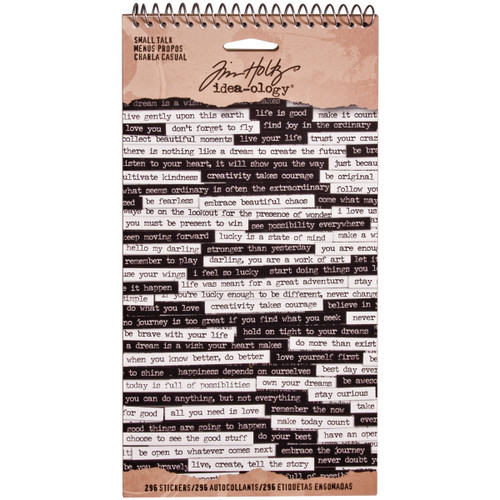 SMALL TALK
MENUS PROPOS
CHARLA CASUAL
Tim Holtz
idea-ology®
dream is a wish
live gently upon this earth life is good make it count
love you don't forget to fly find joy in the ordinary
collect beautiful moments live your life trust your craz
there is nothing like a dream to create the future be bra
isten to your heart, it will show you the way just becau
ultivate kindness creativity takes courage be original
what seems ordinary is often the extraordinary follow you
be fearless embrace beautiful chaos come what may
ays be on the lookout for the presence of wonder i love us
you must be present to win see possibility everywhere
keep moving forward lucky is a state of mind make a wi
hello my darling stronger than yesterday you are en
remember to play darling, you are a work of art let it
use your wings i feel so lucky start doing things you l
e it happen life was meant for a great adventure stay
simple if you're lucky enough to be different, never chang
do what you love creativity takes courage believe in
no journey is too great if you find what you seek never
be brave with your life hold on tight to your dreams
a dream is a wish your heart makes do more than exist
when you know better, do better love yourself first be
to shine happiness depends on ourselves best day ever
today is full of possiblities own your dreams be aweso
you can do anything, but not everything stay curious
for good all you need is love remember the now take
good things are going to happen make today count ever
choose to see the good stuff do your best have an open
be open to whatever comes next embrace the journey
you bravely live, create, tell the story never doubt yo
296 STICKERS/296 AUTOCOLLANTS/296 ETIQUETAS ENGOMADAS